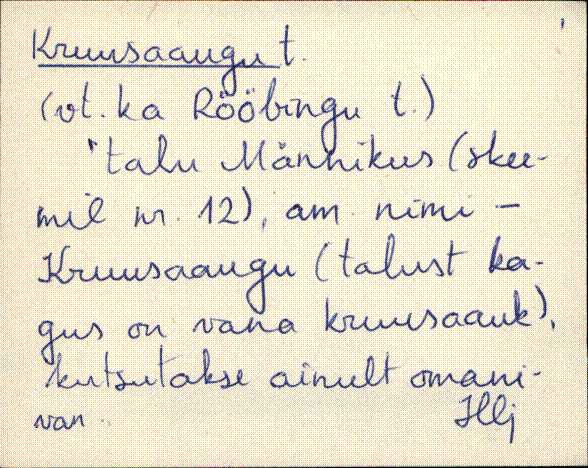 Kruusaaugu t.
(vt. ka Rööbingu t.)
talu Männikus (skee-
mil nr. 12), am. nimi –
Kruusaaugu (talust ka-
gus on vana kruusaauk),
kutsutakse ainult omani-
van.